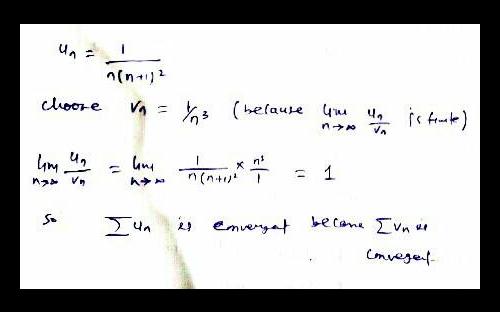 u_n = 1/(n(n+1)^2)
choose v_n = 1/n^3 (because lim_{n→∞} u_n/v_n is finite)
lim_{n→∞} u_n/v_n = lim_{n→∞} 1/(n(n+1)^2) × n^3/1 = 1
so ∑u_n is convergent because ∑v_n is
convergent.